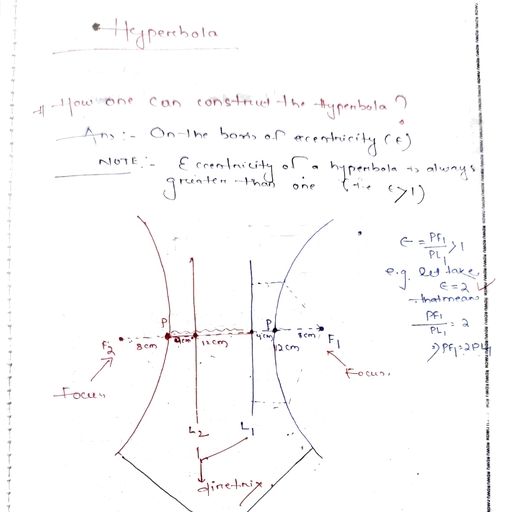 • Hyperbola
# How one can construct the Hyperbola?
Ans :- On the basis of eccentricity (E)
NOTE :- Eccentricity of a hyperbola is always
greater than one (i.e. E>1)
E = PF₁/PL₁ > 1
e.g. let take
E = 2
that means
PF₁/PL₁ = 2
⇒ PF₁ = 2PL₁
P P
F₂ 8cm 4cm 12cm 4cm 8cm F₁
12cm
Focus Focus.
L₂ L₁
directrix